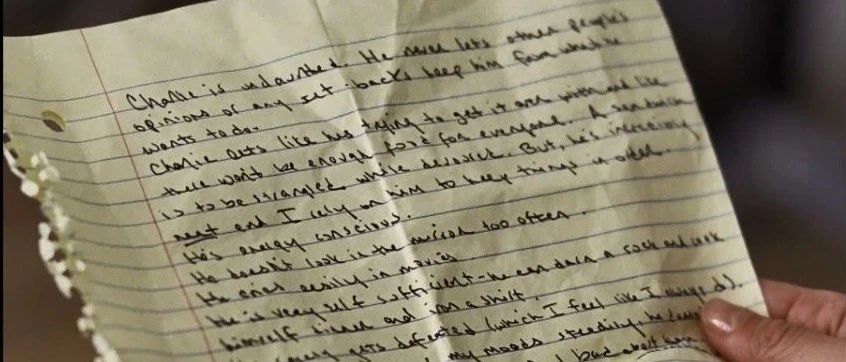 Charlie is undaunted. He never lets other people's
opinions or any set-backs keep him from what he
wants to do.
Charlie eats like he's trying to get it over with and like
there won't be enough food for everyone. A sandwich
is to be strangled while devoured. But, he's incredibly
neat and I rely on him to keep things in order.
He's energy conscious.
He doesn't look in the mirror too often.
He cries easily in movies
He is very self sufficient - he can darn a sock and cook
himself dinner and iron a shirt.
gets defeated (which I feel like I
my moods steadily, he